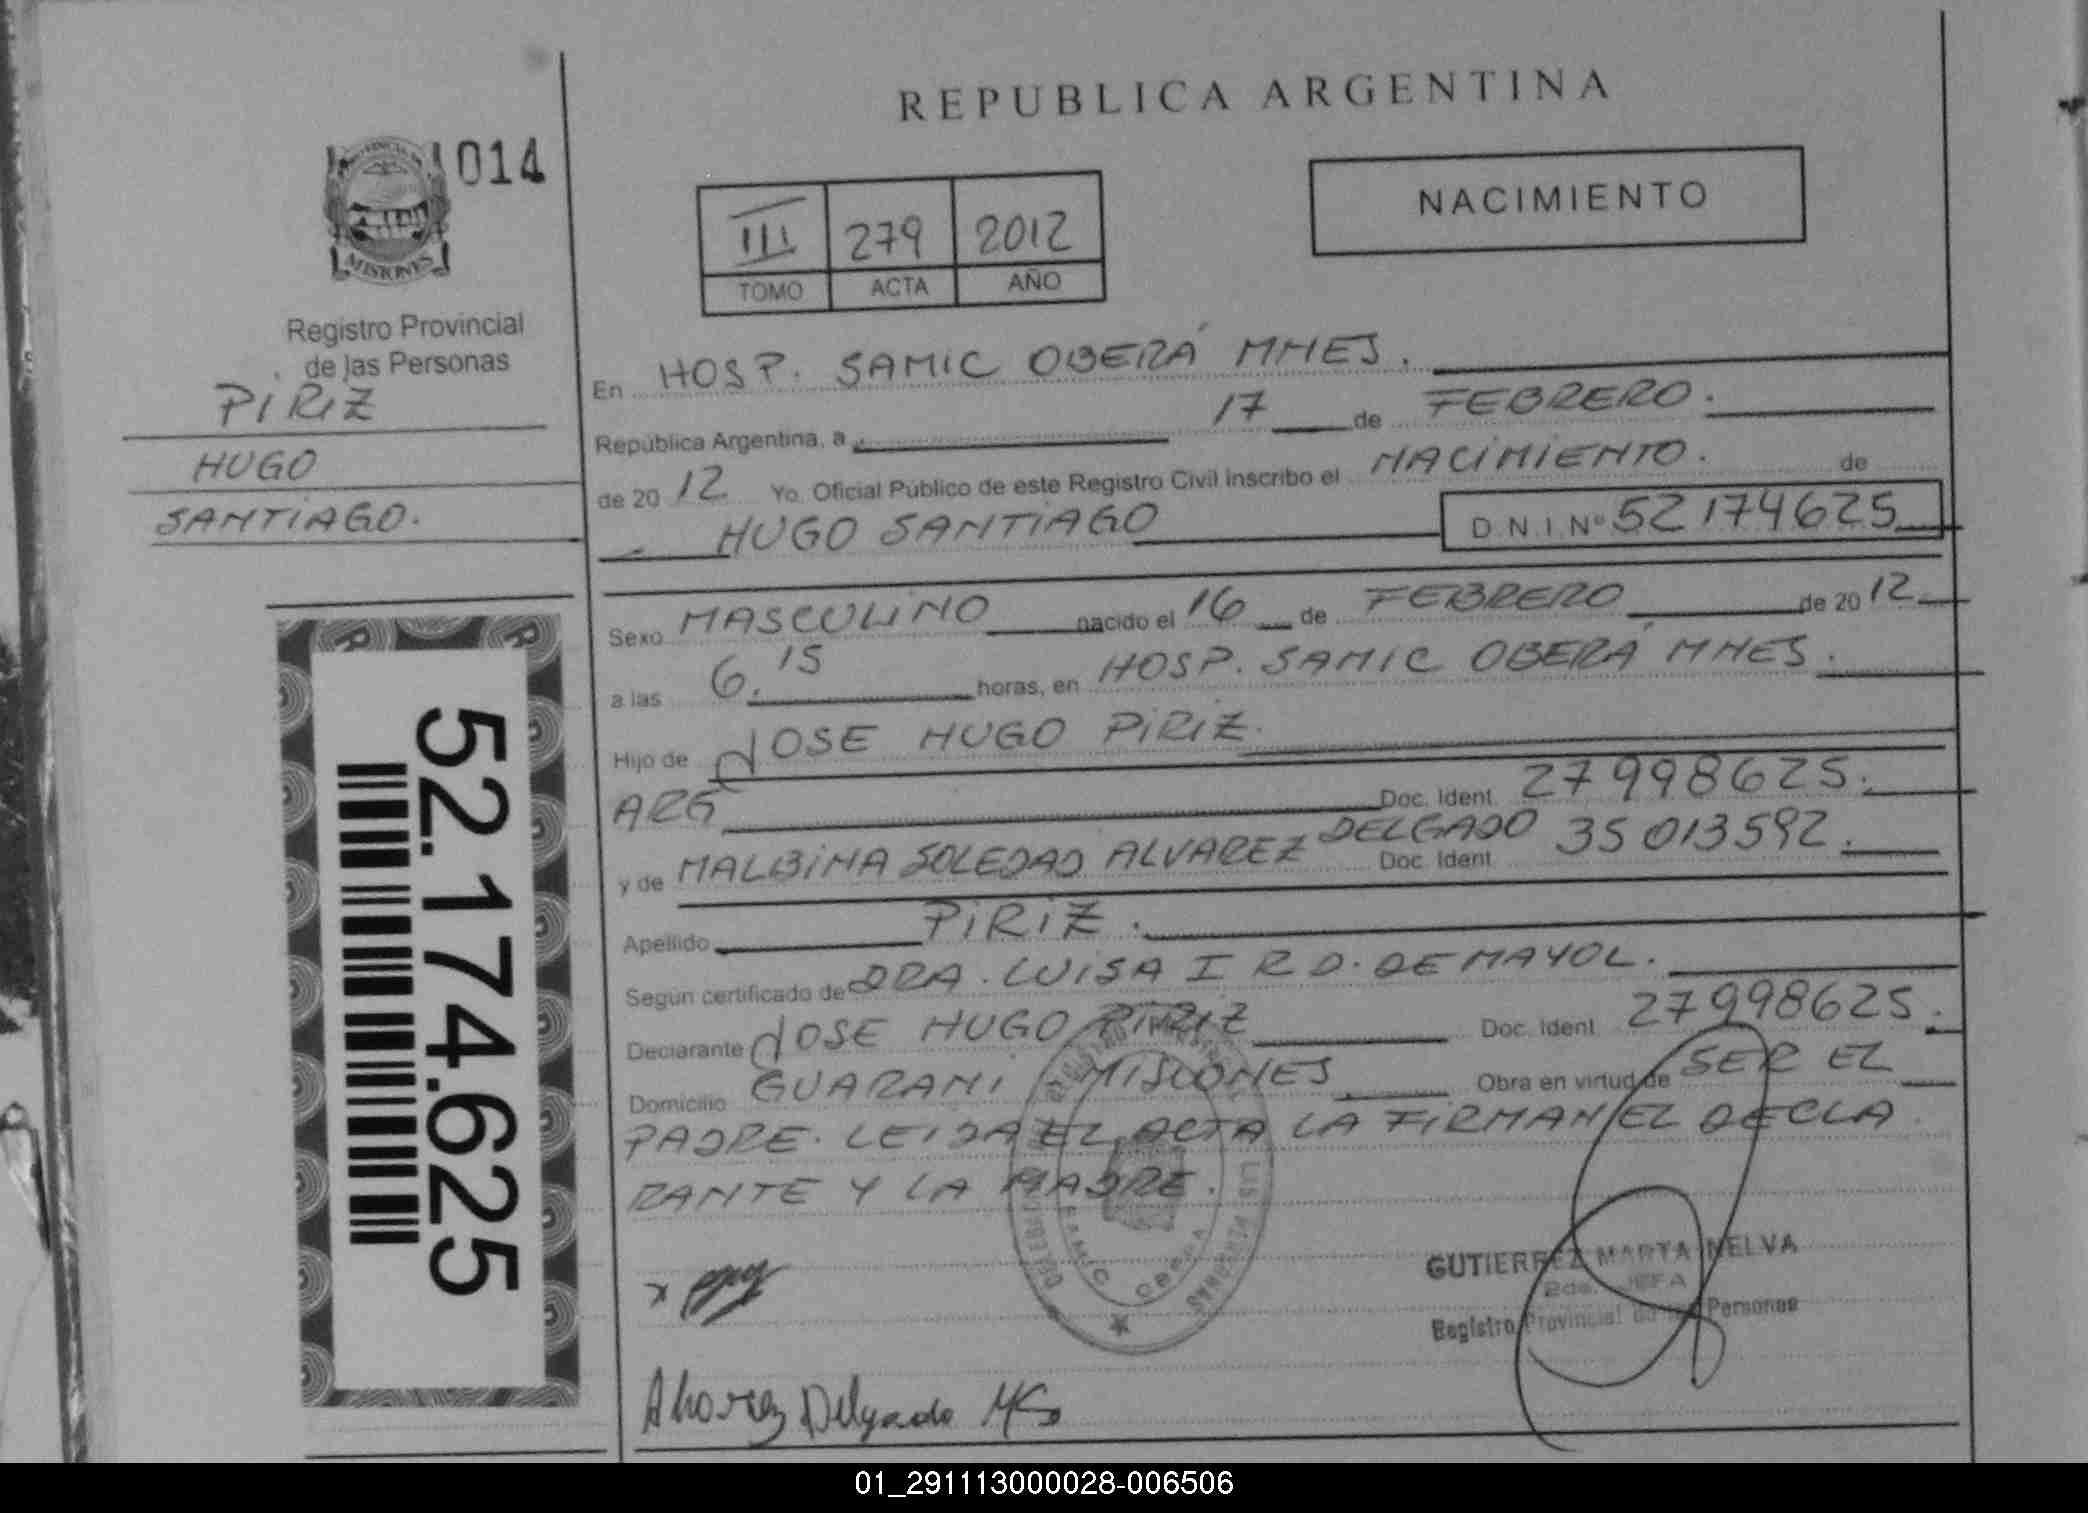 REPUBLICA ARGENTINA
014
MISIONES
Registro Provincial
de las Personas
PIRIZ
HUGO
SANTIAGO.
52.174.625
III 279 2012
TOMO ACTA AÑO
NACIMIENTO
En HOSP. SAMIC OBERÁ MNES.
República Argentina, a 17 de FEBRERO.
de 20 12 Yo, Oficial Público de este Registro Civil inscribo el NACIMIENTO. de
HUGO SANTIAGO D.N.I. Nº 52174625
Sexo MASCULINO nacido el 16 de FEBRERO de 20 12
a las 6.15 horas, en HOSP. SAMIC OBERÁ MNES.
Hijo de JOSE HUGO PIRIZ.
ARG Doc. Ident. 27998625.
y de MALBINA SOLEDAD ALVAREZ DELGADO Doc. Ident. 35013592.
Apellido PIRIZ.
Según certificado de DRA. LUISA I R D. DE MAYOL.
Declarante JOSE HUGO PIRIZ Doc. Ident. 27998625.
Domicilio GUARANI MISIONES Obra en virtud de SER EL
PADRE. LEIDA EL ACTA LA FIRMAN EL DECLA
RANTE Y LA MADRE.
GUTIERREZ MARTA NELVA
2da. JEFA
Registro Provincial de las Personas
Alvarez Delgado MS
01_291113000028-006506